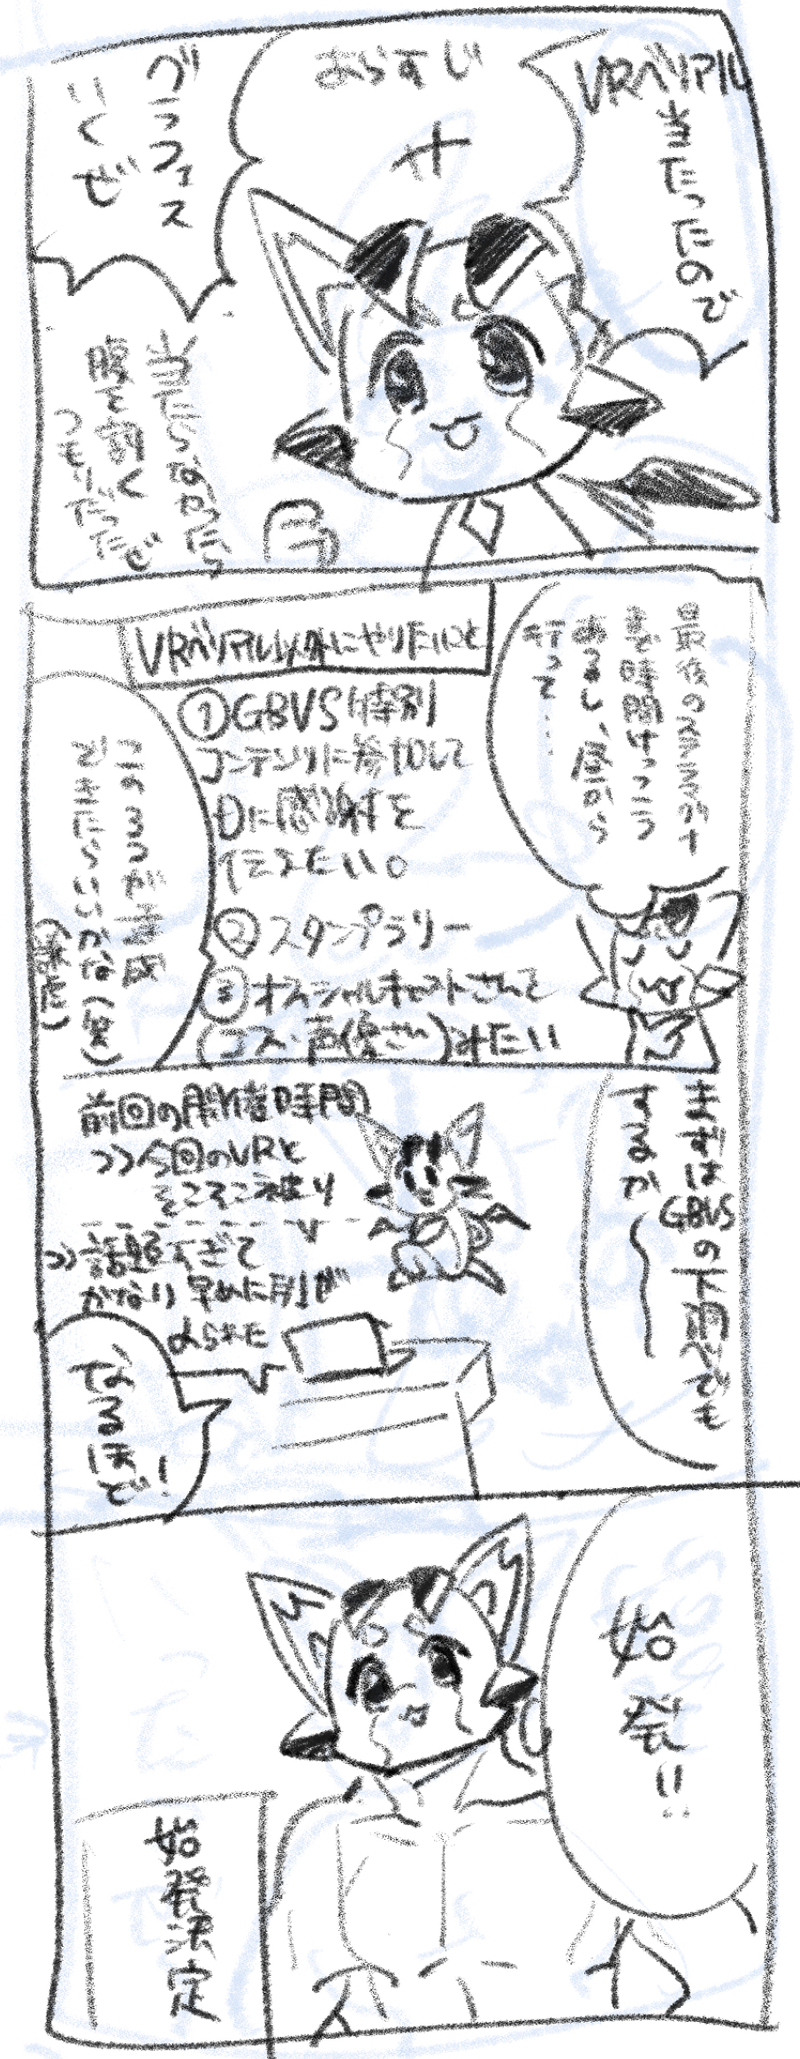 VRベリアル
当たったので
あらすじ
グラフェス
いくぜ
当たらなかったら
腹を割く
つもりだったぜ
最後のステラマグナ
まで時間けっこう
あるし、昼から
行って…
VRベリアル以外にやりたいこと
①GBVS特別
コンテンツに参加して
Dに感謝を
伝えたい。
②スタンプラリー
③オフィシャルキャストさんて
(コス・声優さん)みたい
この3つが達成
できたらいいかな(笑)
まずは
GBVSの下調べでも
するか
前回の開催時間
>>今回のVRと
そこそこ被り
>>話題すぎて
かなり早めに列が
なるほど!
始発!!
始発決定